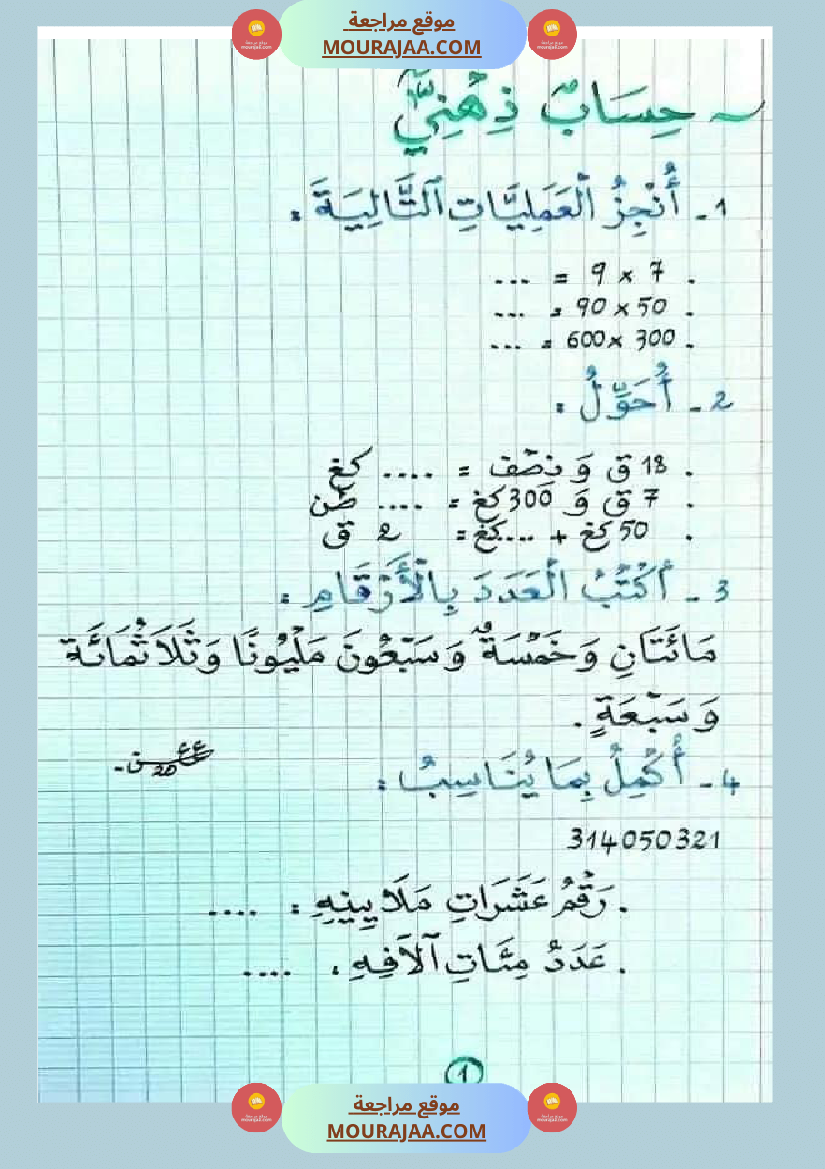 موقع مراجعة
MOURAJAA.COM
~ حِسَابٌ ذِهْنِيٌّ
1 - أُنْجِزُ ٱلْعَمَلِيَّاتِ ٱلتَّالِيَةَ :
. 7 × 9 = ...
. 50 × 90 = ...
. 300 × 600 = ...
2 - أُحَوِّلُ :
. 18 ق وَ نِصْف = .... كغ
. 7 ق وَ 300 كغ = .... طن
. 50 كغ + ... كغ = 2 ق
3 - أَكْتُبُ ٱلْعَدَدَ بِٱلْأَرْقَامِ :
مَائَتَانِ وَخَمْسَةٌ وَسَبْعُونَ مَلْيُونًا وَثَلَاثُمَائَة
وَسَبْعَةٍ .
4 - أُكْمِلُ بِمَا يُنَاسِبُ :
314050321
. رَقْمُ عَشَرَاتِ مَلَايِينِهِ : ....
. عَدَدُ مِئَاتِ آلَافِهِ : ....
1
موقع مراجعة
MOURAJAA.COM